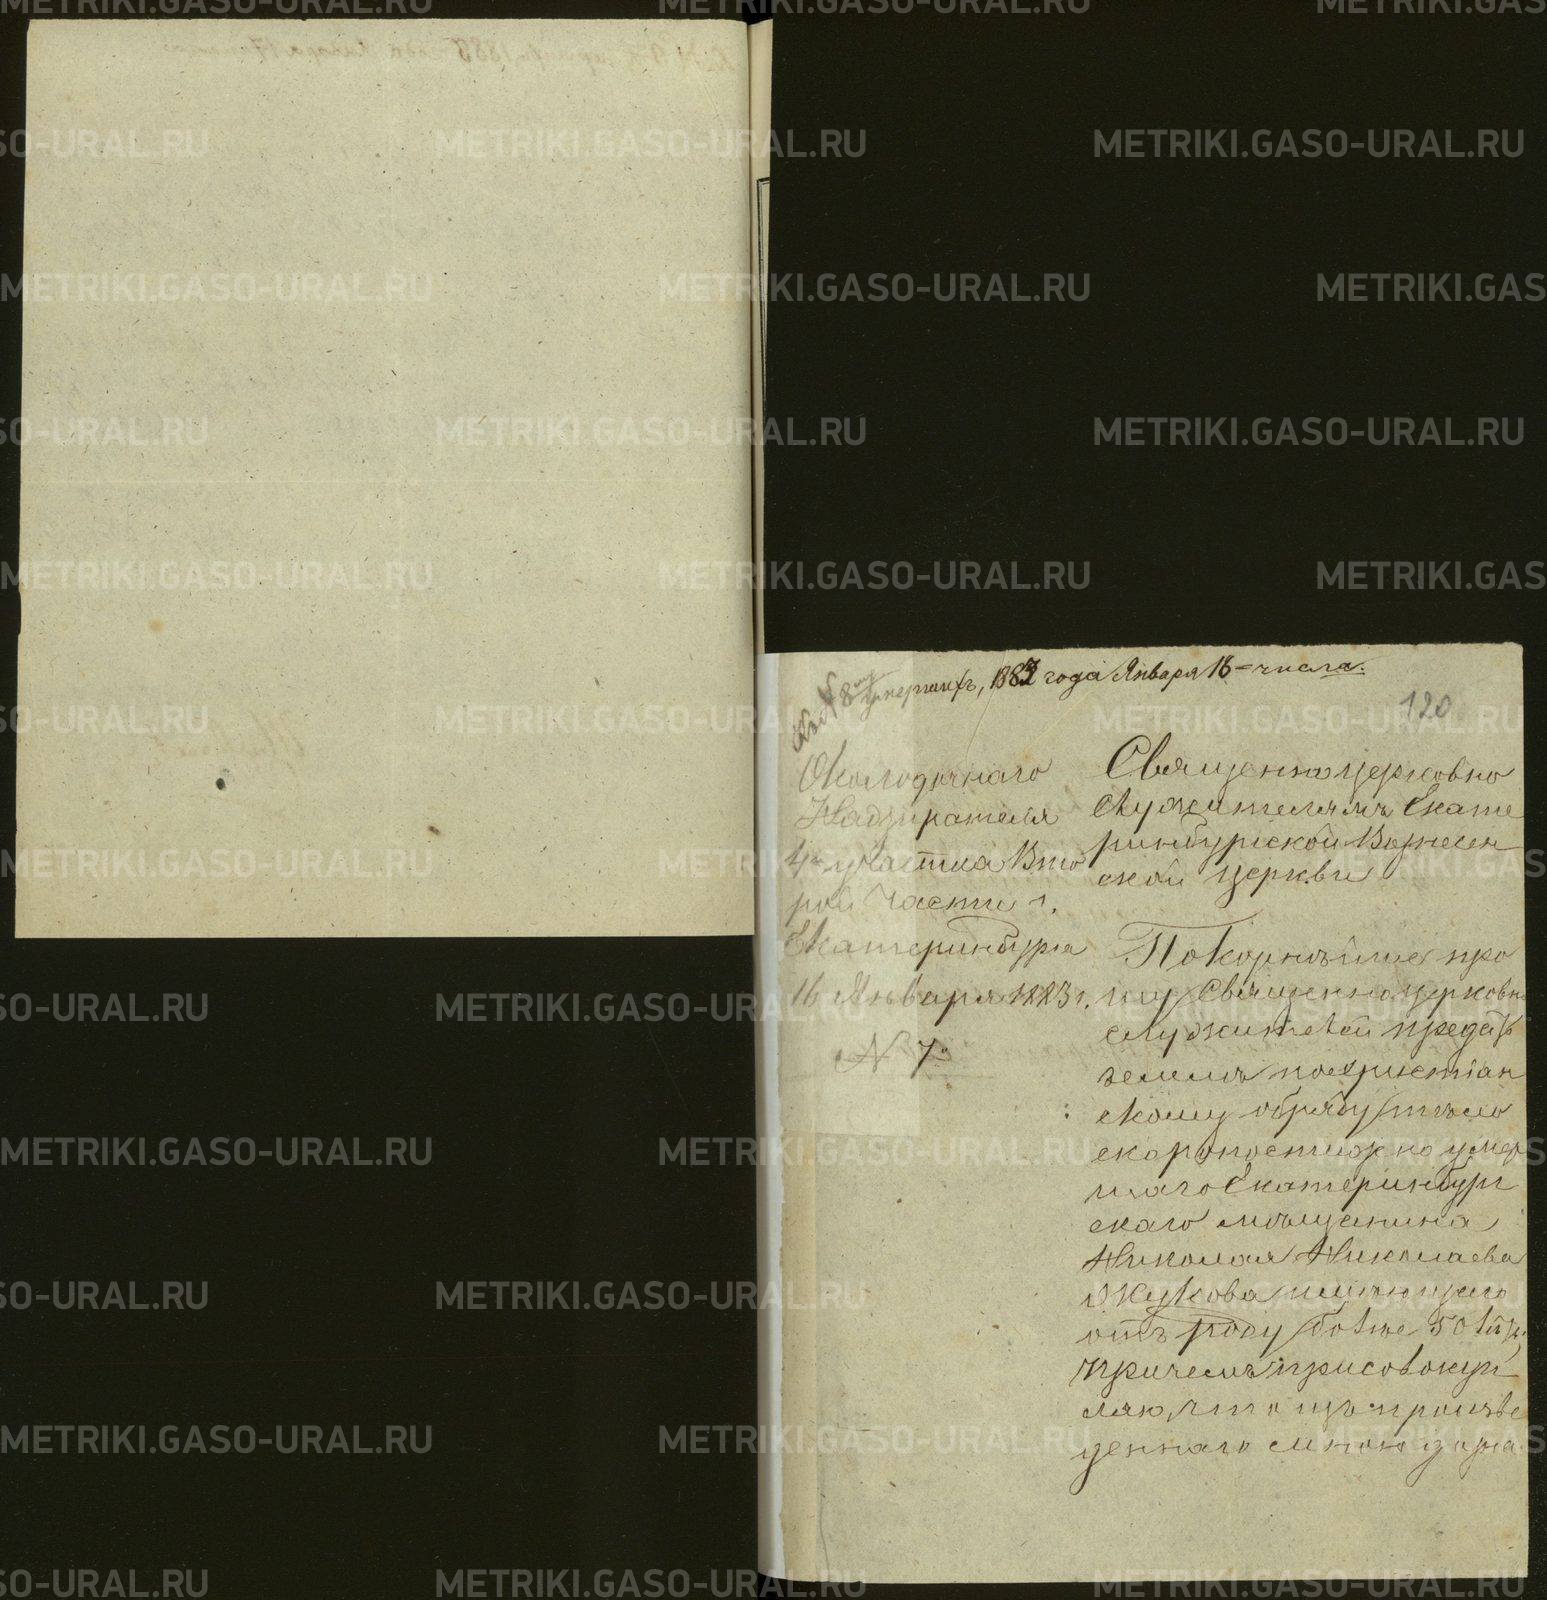 Къ № 8му умершихъ, 1883 года Января 16 = числа.
120
Околодочнаго
Надзирателя
4го участка Вто
рой Части г.
Екатеринбурга
16 Января 1883 г.
№ 7.
Священноцерковно
служителямъ Екате
ринбургской Вознесен
ской церкви
Покорнѣйше про
шу Священноцерковно
служителей предать
землѣ по христіан
скому обряду тѣло
скоропостижно умер
шаго Екатеринбург
скаго мѣщанина
Николая Николаева
Жукова имѣющаго
отъ роду болѣе 50 лѣтъ,
причемъ присовокуп
ляю, что изъ произве
деннаго мною дозна
METRIKI.GASO-URAL.RU